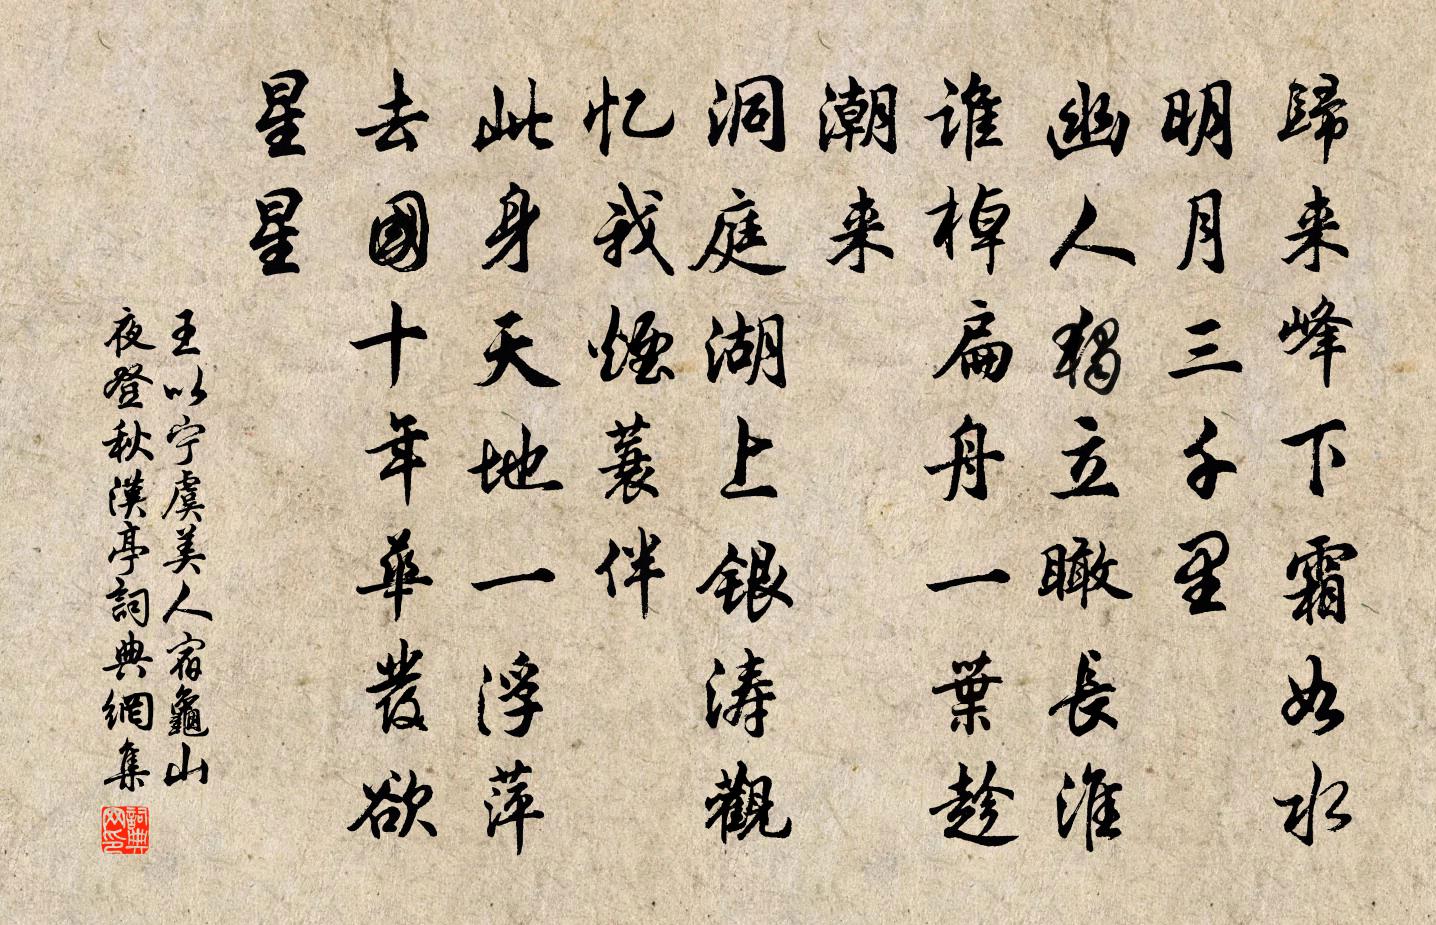 歸来峰下霜如水
明月三千里
幽人獨立瞰長淮
谁棹扁舟一葉趁
潮来
洞庭湖上銀涛觀
忆我煙蓑伴
此身天地一浮萍
去國十年華髮欲
星星
王以宁虞美人宿龜山
夜登秋漢亭詞典網集
詞典网印